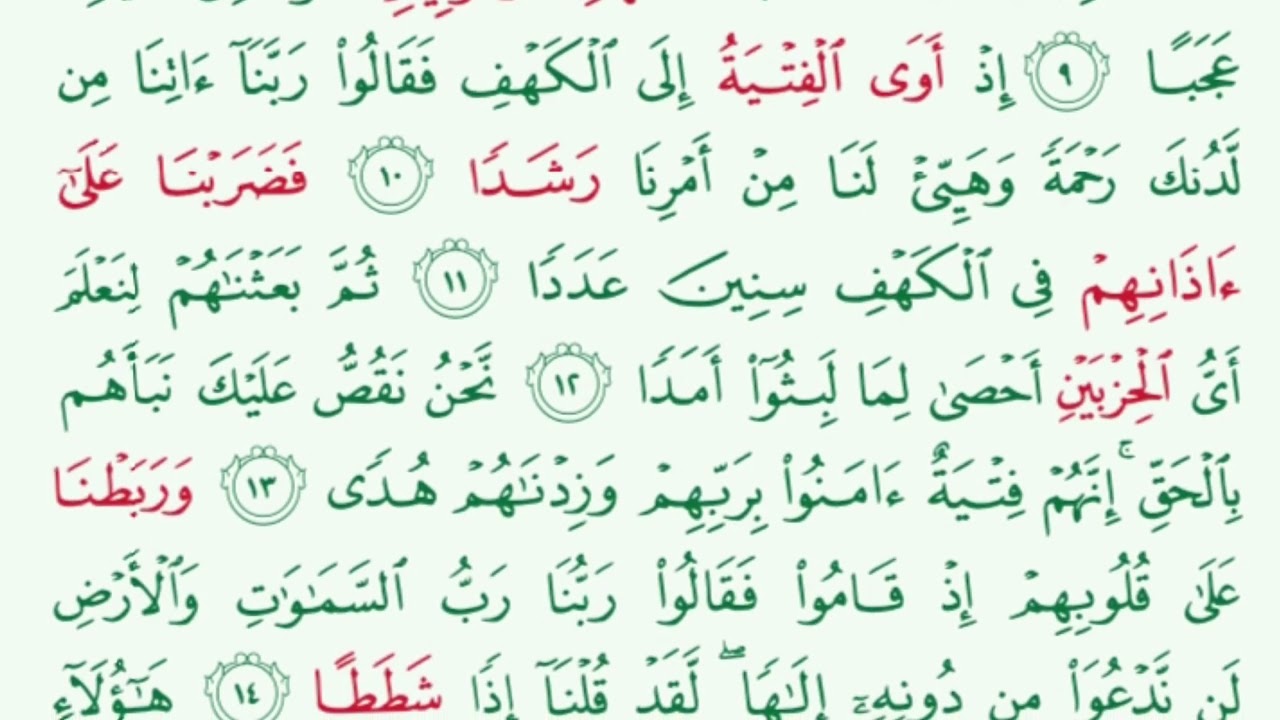 عَجَبًا ٩ إِذۡ أَوَى ٱلۡفِتۡيَةُ إِلَى ٱلۡكَهۡفِ فَقَالُواْ رَبَّنَآ ءَاتِنَا مِن
لَّدُنكَ رَحۡمَةٗ وَهَيِّئۡ لَنَا مِنۡ أَمۡرِنَا رَشَدٗا ١٠ فَضَرَبۡنَا عَلَىٰٓ
ءَاذَانِهِمۡ فِي ٱلۡكَهۡفِ سِنِينَ عَدَدٗا ١١ ثُمَّ بَعَثۡنَٰهُمۡ لِنَعۡلَمَ
أَيُّ ٱلۡحِزۡبَيۡنِ أَحۡصَىٰ لِمَا لَبِثُوٓاْ أَمَدٗا ١٢ نَّحۡنُ نَقُصُّ عَلَيۡكَ نَبَأَهُم
بِٱلۡحَقِّۚ إِنَّهُمۡ فِتۡيَةٌ ءَامَنُواْ بِرَبِّهِمۡ وَزِدۡنَٰهُمۡ هُدٗى ١٣ وَرَبَطۡنَا
عَلَىٰ قُلُوبِهِمۡ إِذۡ قَامُواْ فَقَالُواْ رَبُّنَا رَبُّ ٱلسَّمَٰوَٰتِ وَٱلۡأَرۡضِ
لَن نَّدۡعُوَاْ مِن دُونِهِۦٓ إِلَٰهٗاۖ لَّقَدۡ قُلۡنَآ إِذٗا شَطَطًا ١٤ هَٰٓؤُلَآءِ